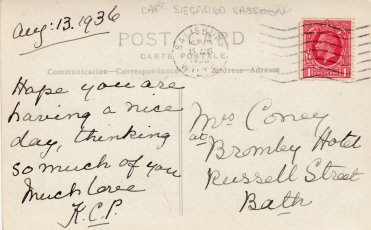 Aug: 13. 1936
CAPT. SIEGFRIED SASSOON
POST CARD
CARTE POSTALE
Communication—Correspondance
Address—Adresse
Hope you are
having a nice
day, thinking
so much of you
Much love
K.C.P.
Mrs Coney
at Bromley Hotel
Russell Street
Bath